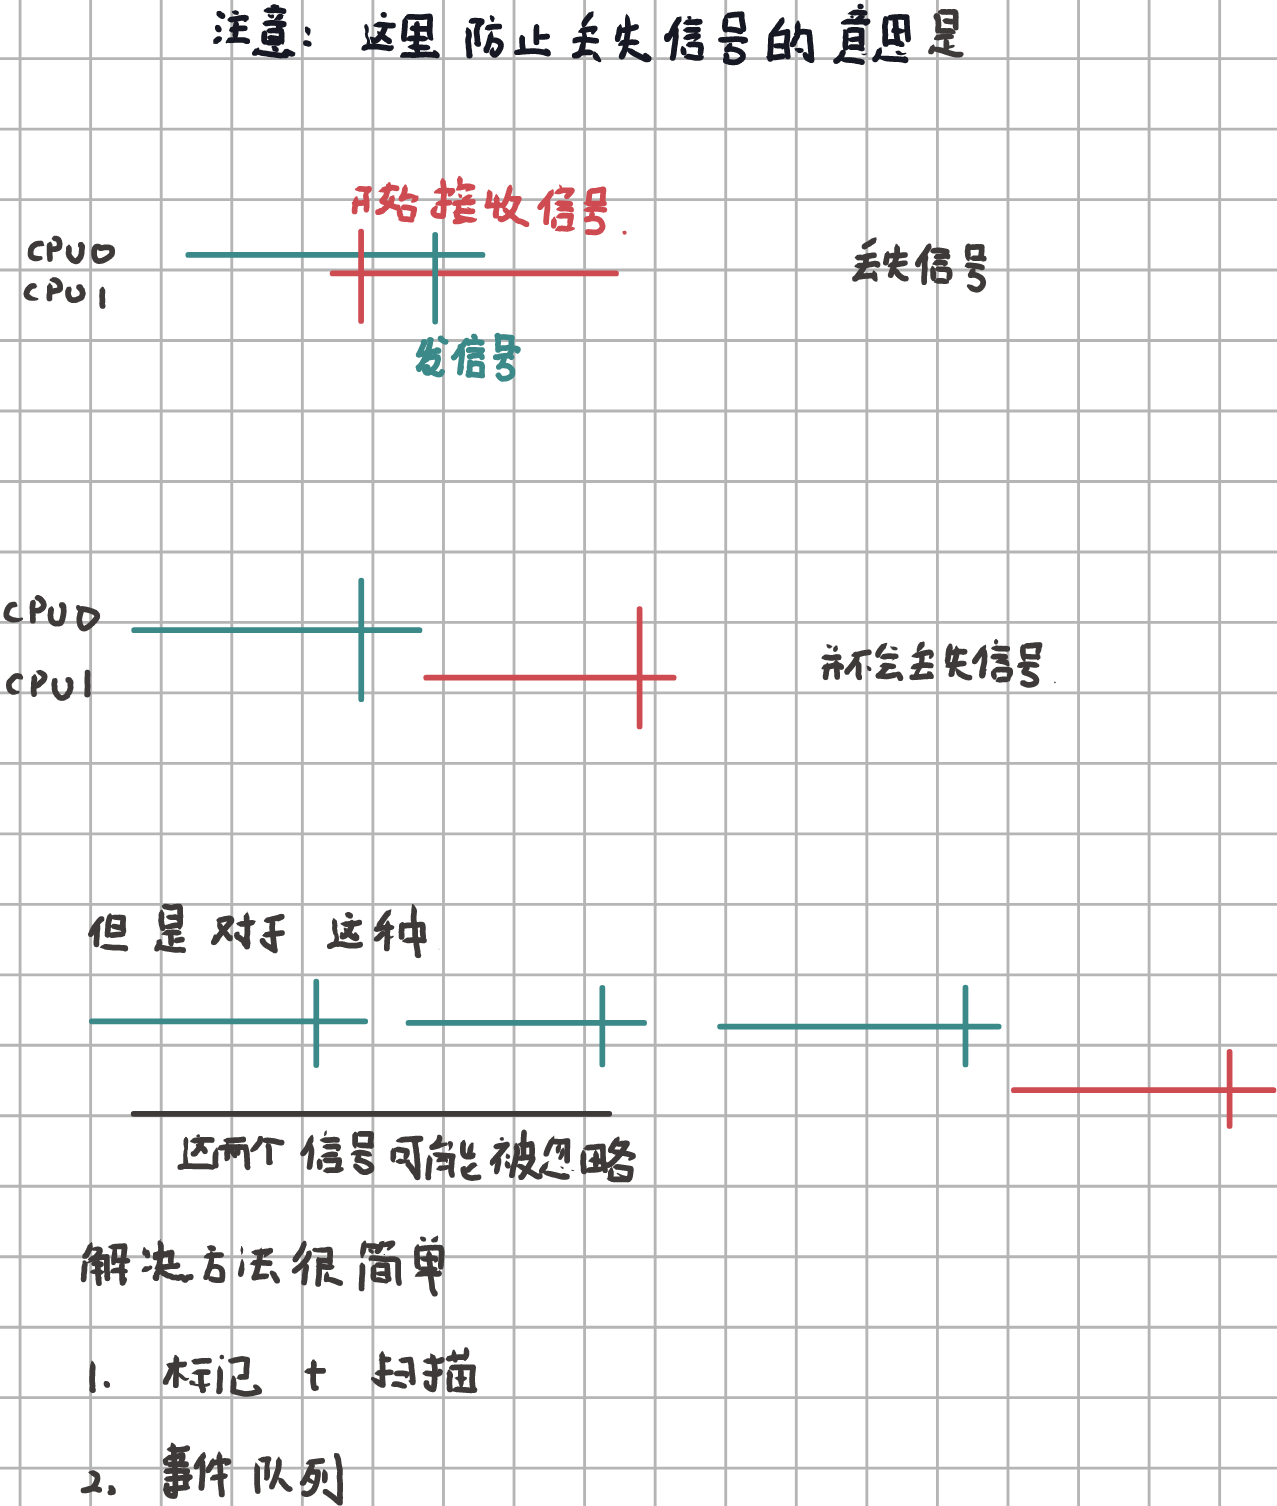 注意： 这里防止丢失信号的意思是
开始接收信号.
CPU0
CPU1
丢失信号
发信号
CPU0
CPU1
并不会丢失信号.
但是对于这种
这两个信号可能被忽略
解决方法很简单
1. 标记 + 扫描
2. 事件队列